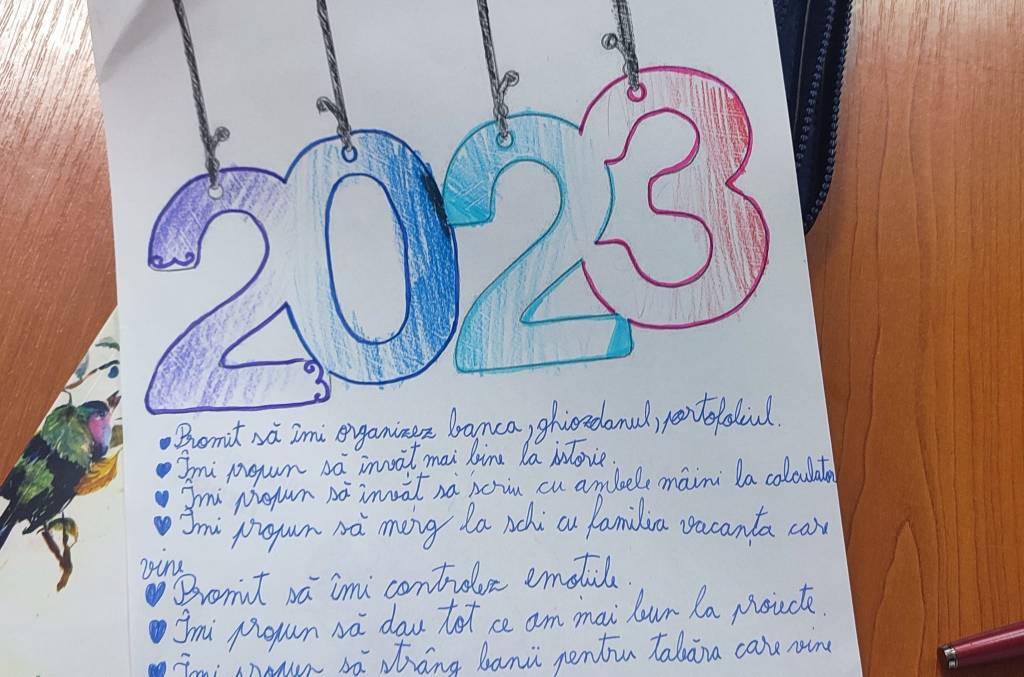 2023
Promit să îmi organizez banca, ghiozdanul, portofoliul.
Îmi propun să învăț mai bine la istorie.
Îmi propun să învăț să scriu cu ambele mâini la calculator
Îmi propun să merg la schi cu familia vacanța care
vine
Promit să îmi controlez emoțiile.
Îmi propun să dau tot ce am mai bun la proiecte.
Îmi propun să strâng banii pentru tabăra care vine